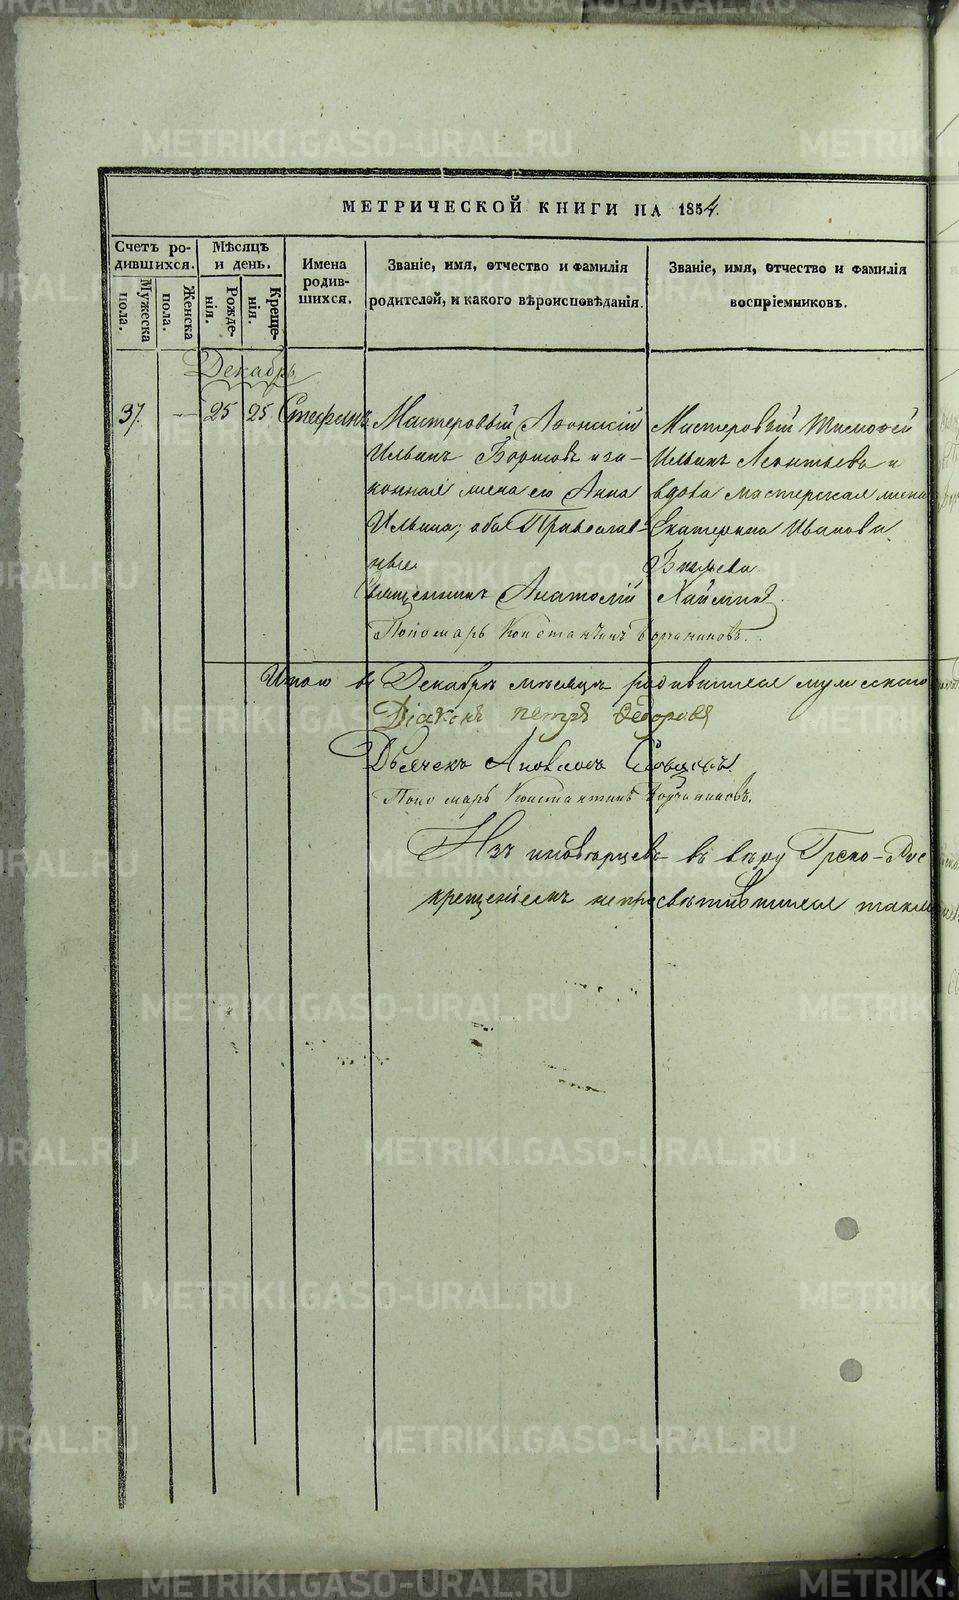 МЕТРИЧЕСКОЙ КНИГИ НА 1854.
Счетъ ро-
дившихся.
Мужеска
пола.
Женска
пола.
Мѣсяцъ
и день.
Рожде-
нія.
Креще-
нія.
Имена
родив-
шихся.
Званіе, имя, отчество и фамилія
родителей, и какого вѣроисповѣданія.
Званіе, имя, отчество и фамилія
воспріемниковъ.
Декабрь
37. — 25 25 Стефанъ
Мастеровый
Ильинъ Борисовъ и за-
конная жена его Анна
Ильина, оба Православ-
ные.
Мастеровый Тимофей
Ильинъ Леонтьевъ и
вдова мастерская жена
Екатерина Иванова
Священникъ Анатолій
Пономарь Константинъ
Итого въ Декабрѣ мѣсяцѣ родившихся мужескаго
Діаконъ петръ Ѳедоровъ
Дьячекъ
Пономарь Константинъ
Изъ иновѣрцевъ въ вѣру Греко-Рос
крещеніемъ непросвѣтившихся
METRIKI.GASO-URAL.RU